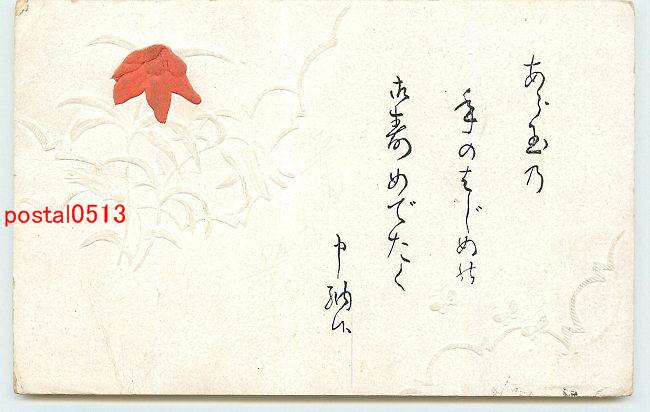 あら玉乃
年のはじめの
御寿めでたく
申納候
postal0513